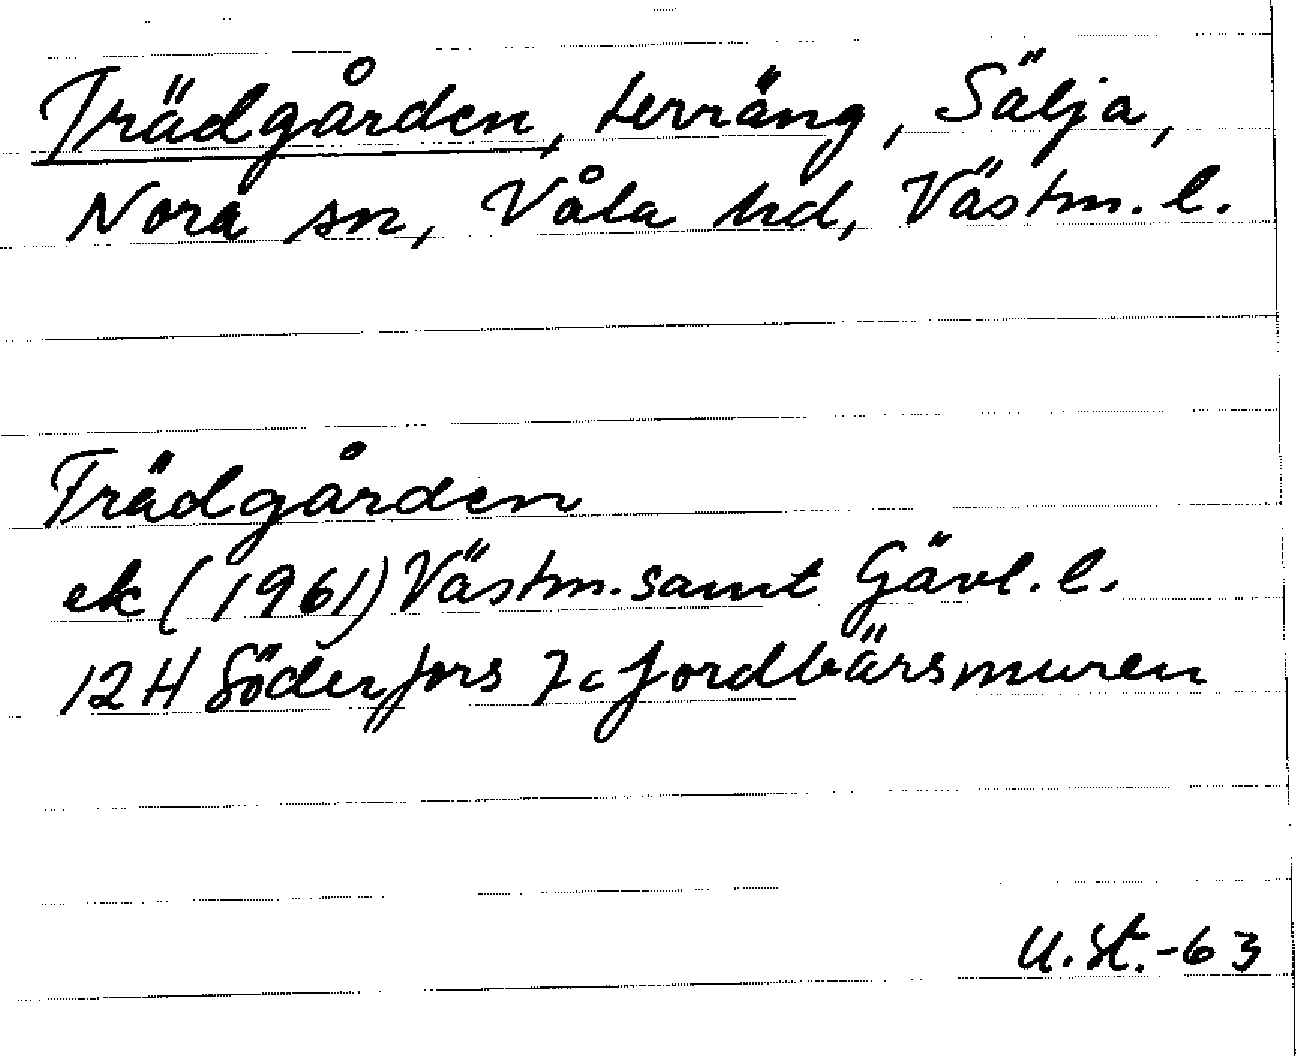 Trädgården, terräng, Sälja,
Nora sn, Våla hd, Västm. l.
Trädgården
ek (1961) Västm. samt Gävl. l.
12 H Söderfors 7c Jordbärsmuren
U.St.-63